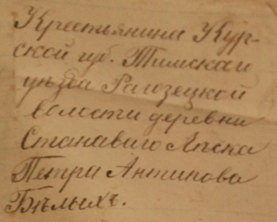 Крестьянина Кур-
ской губ. Тимскаи
уѣзда Рагозецкой
волости деревни
Станаваго
Петра Антипова
Бѣлыхъ.